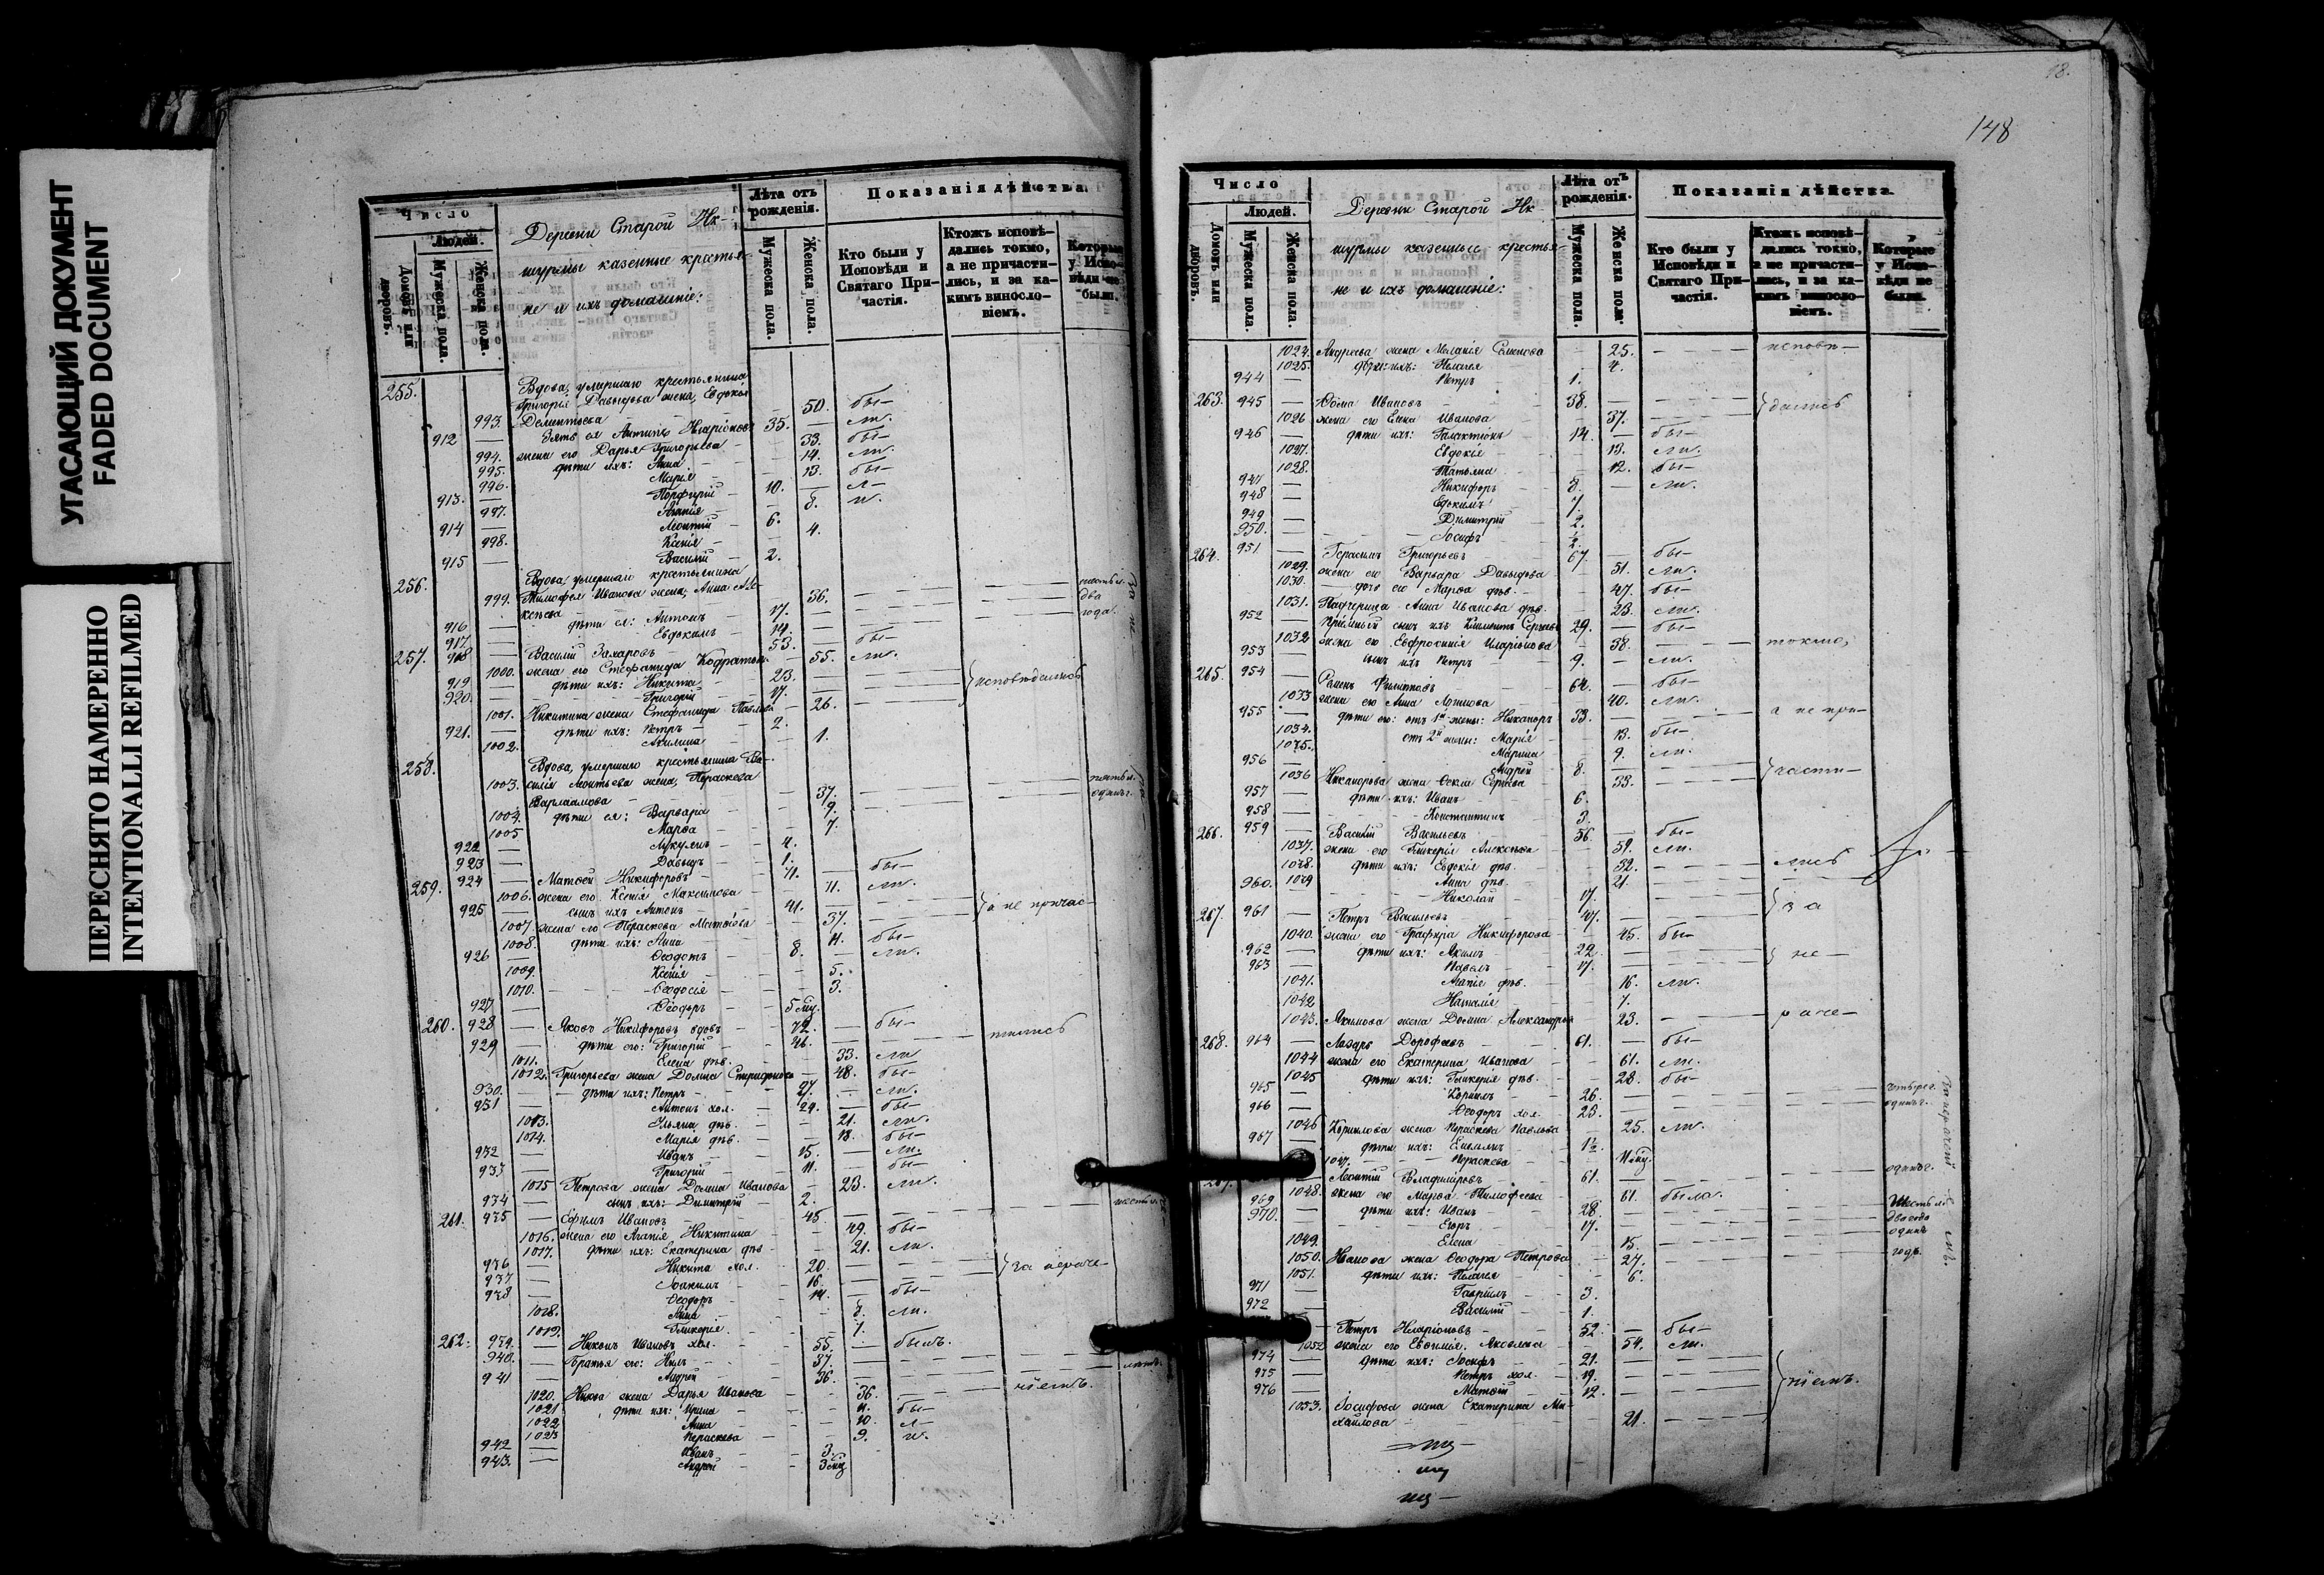 УГАСАЮЩИЙ ДОКУМЕНТ
FADED DOCUMENT
ПЕРЕСНЯТО НАМЕРЕННО
INTENTIONALLI REFILMED
Число
Людей.
Домовъ или дворовъ.
Мужеска пола.
Женска пола.
Деревни Старой Ик-
шурмы казенные крестья-
не и ихъ домашніе:
Лѣта отъ рожденія.
Мужеска пола.
Женска пола.
Показанія дѣйства.
Кто были у Исповѣди и Святаго При-частія.
Ктожъ исповѣ-дались токмо, а не причасти-лись, и за ка-кимъ винословіемъ.
Которые у Испо-вѣди не были.
255. Вдова, умершаго крестьянина
Григорія Давыдова жена, Евдокія
993. Дементьева 50. бы-
912 Зять ея Антипъ Иларіоновъ 35. ли.
994. жена его Дарья Григорьева 33. бы-
995. дѣти ихъ: Анна 14. ли.
996. Марія 13. бы-
913. Порфирій 10. л-
997. Агапія 8. и.
914 Леонтій 6.
998. Ксенія 4.
915 Василій 2.
256. Вдова, умершаго крестьянина
999. Тимофея Иванова жена, Анна Але-
ксѣева 56. два
916 дѣти ея: Антонъ 17. года.
917. Евдокимъ 14.
257. 918 Василій Захаровъ 53. бы-
1000. жена его Стефанида Кодратьева 55. ли.
919. дѣти ихъ: Никита 23. исповѣдались
920. Григорій 17.
1001. Никитина жена Стефанида Павлова 26.
921. дѣти ихъ: Петръ 2.
1002. Акилина 1.
258. Вдова, умершаго крестьянина Ва-
1003. силія Леонтьева жена, Параскева
Варлаамова 37.
1004. дѣти ея: Варвара 9.
1005 Марѳа 7.
922 Лукулъ 4.
923 Давыдъ 1.
259. 924 Матѳей Никифоровъ 71. бы-
1006. жена его Ксенія Максимова 71. ли.
925 сынъ ихъ Антонъ 41. а не причас-
1007. жена его Параскева Матѳіева 37.
1008. дѣти ихъ: Анна 11. бы-
926 Ѳеодотъ 8. ли.
1009. Ксенія 5.
1010. Ѳеодосія 3.
927 Ѳеодоръ 5 мц.
260. 928 Яковъ Никифоровъ вдовъ 72. бы-
929 дѣти его: Григорій 46. тились
1011. Елена дѣв. 33. ли
1012. Григорьева жена Домна Спиридонова 48. бы-
930. дѣти ихъ: Петръ 27. ли.
931 Антонъ хол. 24. бы-
1013. Ульяна дѣв. 21. ли.
1014. Марія дѣв. 18. бы-
932 Иванъ 15. ли.
933 Григорій 11. бы-
1015 Петрова жена Домна Иванова 23. ли.
934 сынъ ихъ: Димитрій 2.
261. 935 Ефимъ Ивановъ 45.
1016. жена его Агапія Никитина 49. бы-
1017. дѣти ихъ: Екатерина дѣв 21. ли.
936 Никита хол. 20. за нераче-
937 Іоакимъ 16.
938 Ѳеодоръ 14. бы-
1018. Анна 8. ли.
1019. Гликерія 7.
262. 939. Никонъ Ивановъ хол. 55. былъ.
940. братья его: Нилъ 37.
941 Андрей 36.
1020. Нилова жена Дарья Иванова 36. ніемъ.
1021 дѣти ихъ: Ирина 11. бы-
1022 Анна 10. л-
1023 Параскева 9. и.
942 Иванъ 3.
943. Андрей 3 мц
148
Число
Людей.
Домовъ или дворовъ.
Мужеска пола.
Женска пола.
Деревни Старой Ик-
шурмы казенные крестья-
не и ихъ домашніе:
Лѣта отъ рожденія.
Мужеска пола.
Женска пола.
Показанія дѣйства.
Кто были у Исповѣди и Святаго При-частія.
Ктожъ исповѣ-дались токмо, а не причасти-лись, и за ка-кимъ винословіемъ.
Которые у Испо-вѣди не были.
1024. Андреева жена Меланія Семенова 25. исповѣ-
1025. дѣти ихъ: Пелагея 4.
944 Петръ 1.
263. 945 Ѳома Ивановъ 38. дались
1026 жена его Елена Иванова 37.
946 дѣти ихъ: Галактіонъ 14. бы-
1027. Евдокія 13. ли.
1028. Татьяна 12. бы-
947 Никифоръ 8. ли.
948 Евдокимъ 7.
949 Димитрій 2.
950. Іосифъ
264. 951 Герасимъ Григорьевъ 67. бы-
1029. жена его Варвара Давыдова 51. ли.
1030. дочь его Марѳа дѣв. 47. бы-
1031. Падчерица Анна Иванова дѣв. 23. ли.
952 пріемный сынъ ихъ Климентъ Сергѣевъ 29. бы-
1032 жена его Евфросинія Иларіонова 38. токмо,
953 сынъ ихъ Петръ 9. ли.
265. 954 Филипповъ 64. бы-
1033 жена его Анна Логинова 40. ли.
955 дѣти его: отъ 1й жены: Никаноръ 33. а не при-
1034. отъ 2й жены: Марія 13. бы-
1035. Марина 9. ли.
956 Андрей 8.
1036 Никанорова жена Ѳекла Сергѣева 33. части-
957 дѣти ихъ: Иванъ 6.
958 Константинъ 3.
266. 959 Василій Васильевъ 56. бы-
1037. жена его Гликерія Алексѣева 59. ли.
1038. дѣти ихъ: Евдокія дѣв. 32. лись
1039 Анна дѣв. 21.
960. Николай 17. за
267. 961 Петръ Васильевъ 47.
1040. жена его Графира Никифорова 45. бы-
962 дѣти ихъ: Акимъ 22. не-
963 Павелъ 17.
1041. Агапія дѣв. 16. ли.
1042 Наталія 7.
1043. Якимова жена Домна Александрова 23. раче-
268. 964 Лазарь Дорофеевъ 61. бы-
1044 жена его Екатерина Иванова 61. ли.
1045 дѣти ихъ: Гликерія дѣв. 28. бы-
965 Корнилъ 26.
966 Ѳеодоръ хол. 23.
1046 Корнилова жена Параскева Павлова 25. ли.
967 дѣти ихъ: Емельянъ 1½
1047. Параскева 11 мц.
Леонтій Владиміровъ 61.
1048. жена его Марѳа Тимофеева 61. была.
969 дѣти ихъ: Иванъ 28.
970. Егоръ 17.
1049. Елена 15.
1050. Иванова жена Ѳеодора Петрова 27. годъ.
1051. дѣти ихъ: Пелагея 6.
971 Гавріилъ 3.
972 Василій 1.
Петръ Иларіоновъ 52. бы-
1052 жена его Евфимія Яковлева 54. ли.
974 дѣти ихъ: Іосифъ 21.
975 Петръ хол. 19.
976 Матѳей 12. ніемъ.
1053. Іосифова жена Екатерина Ми-
хайлова 21.